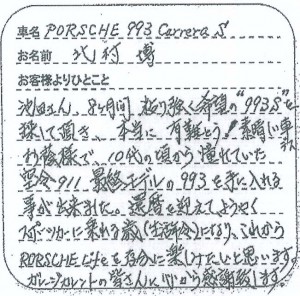 車名 PORSCHE 993 Carrera S
お名前 博
お客様よりひとこと
池田さん、8ヶ月間、粘り強く希望の"993S"を
探して頂き、本当に有難とう!素晴しい車です。
お蔭様で、10代の頃から憧れていた
空冷911最終モデルの993を手に入れる
事が出来ました。還暦を迎えてようやく
スポーツカーに乗れる歳(生活余力)になり、これから
PORSCHE Lifeを存分に楽しみたいと思います。
ガレージカレントの皆さんに心から感謝致します。